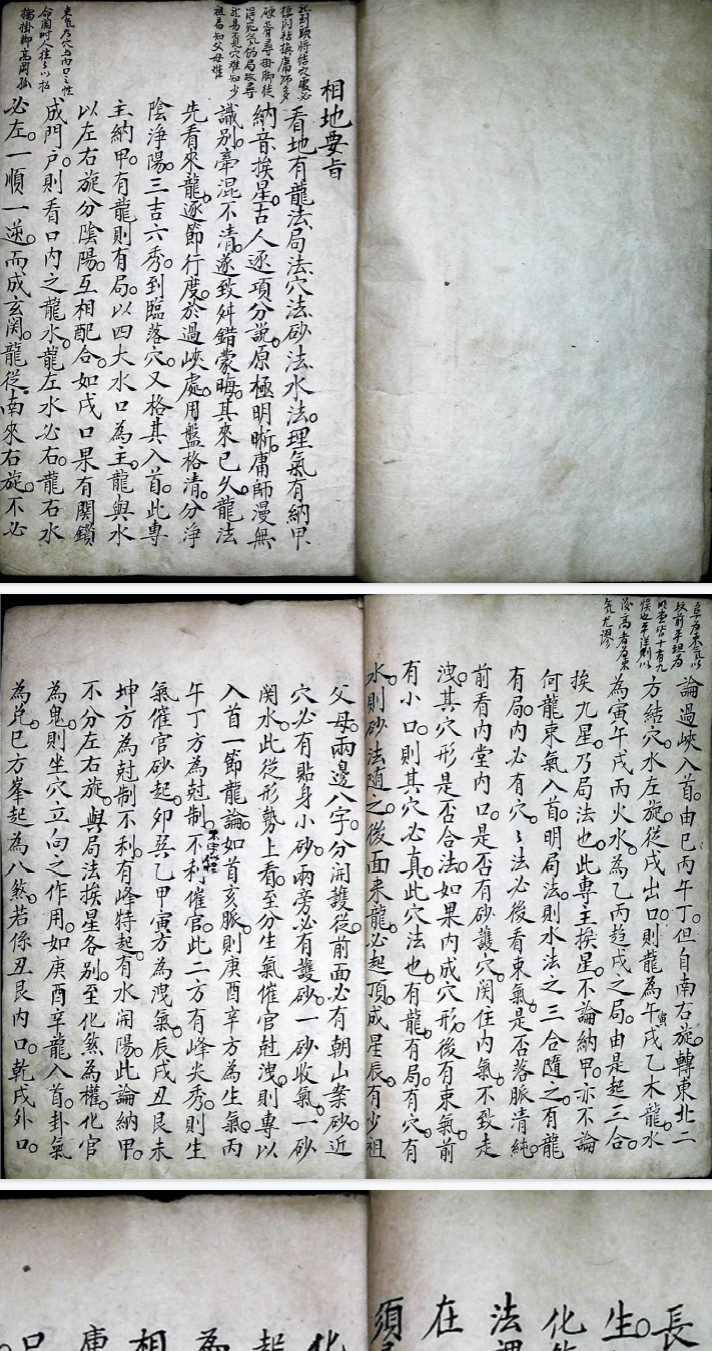 相地要旨
看地有龍法局法穴法砂法水法理氣有納甲
納音挨星古人逐項分說原極明晰庸師漫無
識別牽混不清遂致舛錯蒙晦其來已久龍法
先看來龍逐節行度於過峽處用盤格清分淨
陰淨陽三吉六秀到臨落穴又格其入首此專
主納甲有龍則有局以四大水口為主龍與水
以左右旋分陰陽互相配合如戌口果有関鎖
成門戶則看口內之龍水龍左水必右龍右水
必左一順一逆而成玄関龍從南來右旋不必
論過峽入首由巳丙午丁但自南右旋轉東北二
方結穴水左旋從戌出口則龍為午寅戌乙木龍水
為寅午戌丙火水為乙丙趋戌之局由是起三合
挨九星乃局法也此專主挨星不論納甲亦不論
何龍束氣入首明局法則水法之三合隨之有龍
有局內必有穴穴法必後看束氣是否落脈清純
前看內堂內口是否有砂護穴関住內氣不致走
洩其穴形是否合法如果內成穴形後有束氣前
有小口則其穴必真此穴法也有龍有局有穴有
水則砂法隨之後面来龍必起頂成星辰有少祖
父母兩邊八字分開護從前面必有朝山案砂近
穴必有貼身小砂兩旁必有護砂一砂收氣一砂
関水此從形勢上看至分生氣催官尅洩則專以
入首一節龍論如首亥脈則庚酉辛方為生氣丙
午丁方為尅制不利催官此二方有峰尖秀則生
氣催官砂起卯巽乙甲寅方為洩氣辰戌丑艮未
坤方為尅制不利有峰特起有水開陽此論納甲
不分左右旋與局法挨星各別至化煞為權化官
為鬼則坐穴立向之作用如庚酉辛龍入首卦氣
為兌巳方峯起為八煞若係丑艮內口乾戌外口
長
生
化
法
在
須
化
起
為
相
庚
口